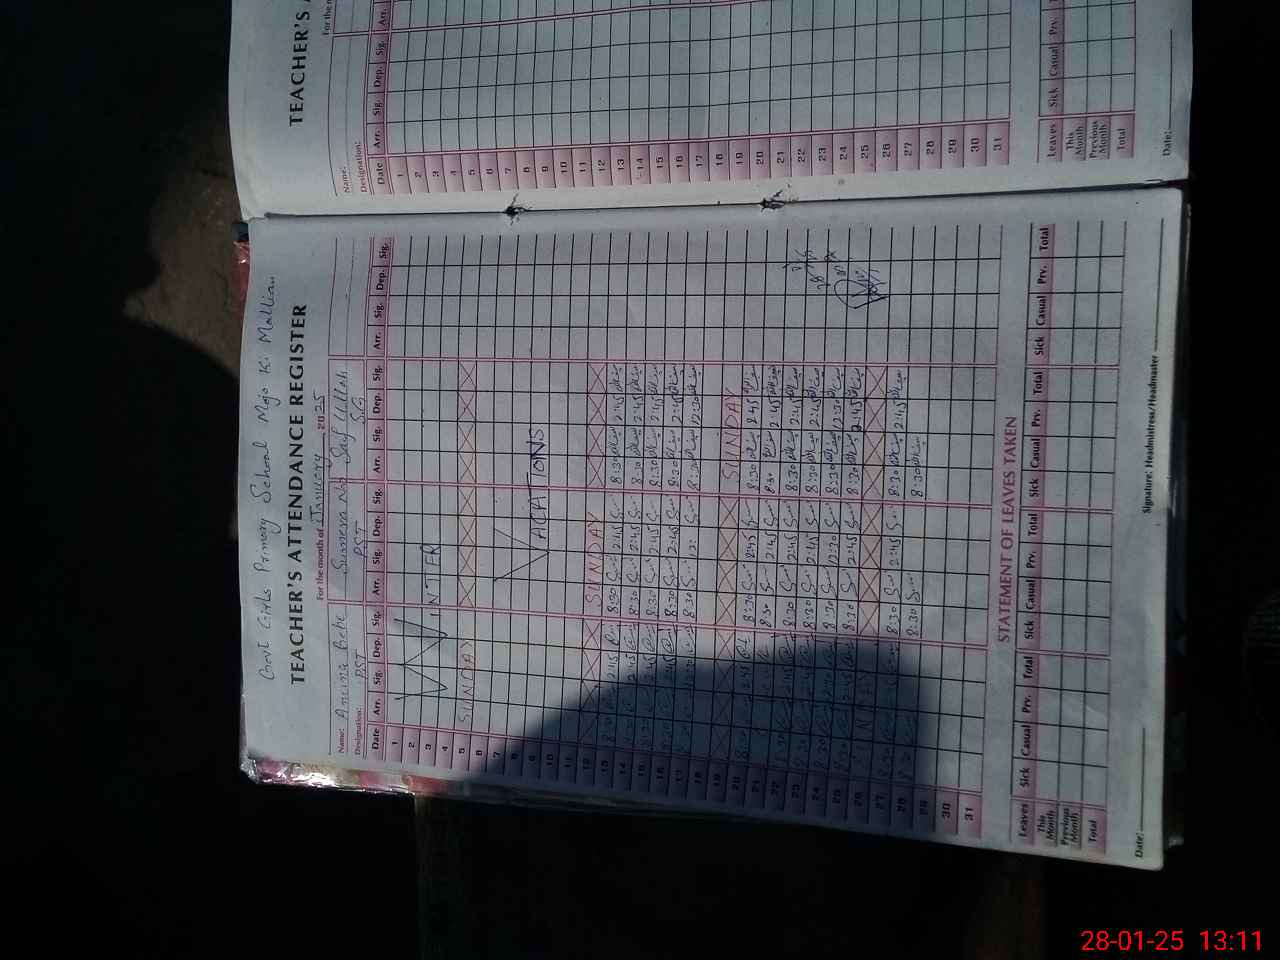 Govt Girls Primary School Mojo Ki Mallian
TEACHER'S ATTENDANCE REGISTER
For the month of January 2025
Name: Amina Bebe Sumera Naz Saif Ullah
Designation: PST PST SG
Date Arr. Sig. Dep. Sig. Arr. Sig. Dep. Sig. Arr. Sig. Dep. Sig. Arr. Sig. Dep. Sig.
1
2 WINTER
3
4
5 SUNDAY
6
7
8 VACATIONS
9
10
11
12 SUNDAY
13 8:30 2:45 8:30 2:45 8:30 2:45
14 8:30 2:45 8:30 2:45 8:30 2:45
15 8:30 2:45 8:30 2:45 8:30 2:45
16 8:30 2:45 8:30 2:45 8:30 2:45
17 8:30 8:30 12: 8:30 12:30
18
19 SUNDAY
20 8:30 2:45 8:30 2:45 8:30 2:45
21 8:30 8:30 2:45 8:30 2:45
22 8:30 2:45 8:30 2:45 8:30 2:45
23 8:30 2:45 8:30 2:45 8:30 2:45
24 8:30 12:30 8:30 12:30 8:30 12:30
25 8:30 2:45 8:30 2:45 8:30 2:45
26 SUNDAY
27 8:30 8:30 2:45 8:30 2:45
28 8:30 8:30 8:30
29
30
31
STATEMENT OF LEAVES TAKEN
Leaves Sick Casual Prv. Total Sick Casual Prv. Total Sick Casual Prv. Total Sick Casual Prv. Total
This Month
Previous Month
Total
Date: Signature: Headmistress/Headmaster
TEACHER'S A
For the m
Name:
Designation:
Date Arr. Sig. Dep. Sig. Arr.
1
2
3
4
5
6
7
8
9
10
11
12
13
14
15
16
17
18
19
20
21
22
23
24
25
26
27
28
29
30
31
Leaves Sick Casual Prv. T
This Month
Previous Month
Total
Date:
28-01-25 13:11